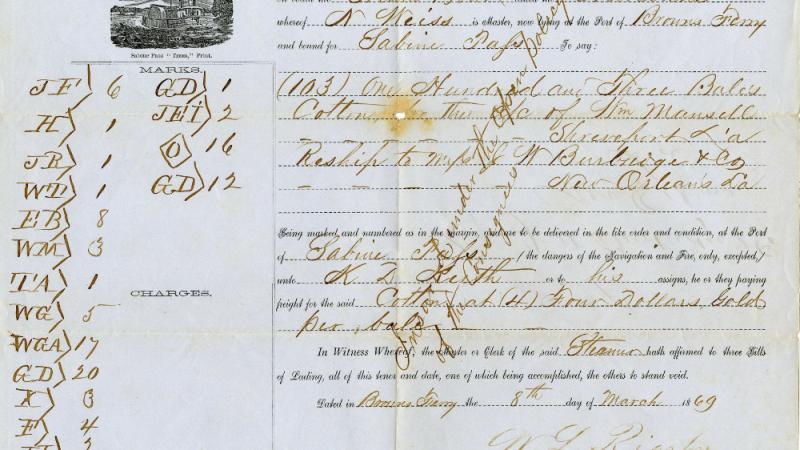 whereof N Meiss is Master, now lying at the Port of Browns Ferry
and bound for Sabine Pass To say:
Sabine Pass "Times," Print.
MARKS.
JF 6
H 1
JB 1
WT 1
EB 8
WM 3
TA 1
WG 5
WGA 17
GD 20
X 3
F 4
GD 1
JEI 2
O 16
GD 12
(103) One Hundred and Three Bales
Cotton, for the a/c of Wm Mansell
Shreveport L'a
Reship to W Burbridge & Co
New Orleans La
Being marked and numbered as in the margin, and are to be delivered in the like order and condition, at the Port
of Sabine Pass / the dangers of the Navigation and Fire, only, excepted,/
unto K. D. Keith or to his assigns, he or they paying
freight for the said Cotton at (4) Four Dollars, Gold
per, bale
CHARGES.
In Witness Whereof, the Master or Clerk of the said Steamer hath affirmed to three Bills
of Lading, all of this tenor and date, one of which being accomplished, the others to stand void.
Dated in Browns Ferry the 8th day of March 1869
Insured under the Open Policy
of the Consignees